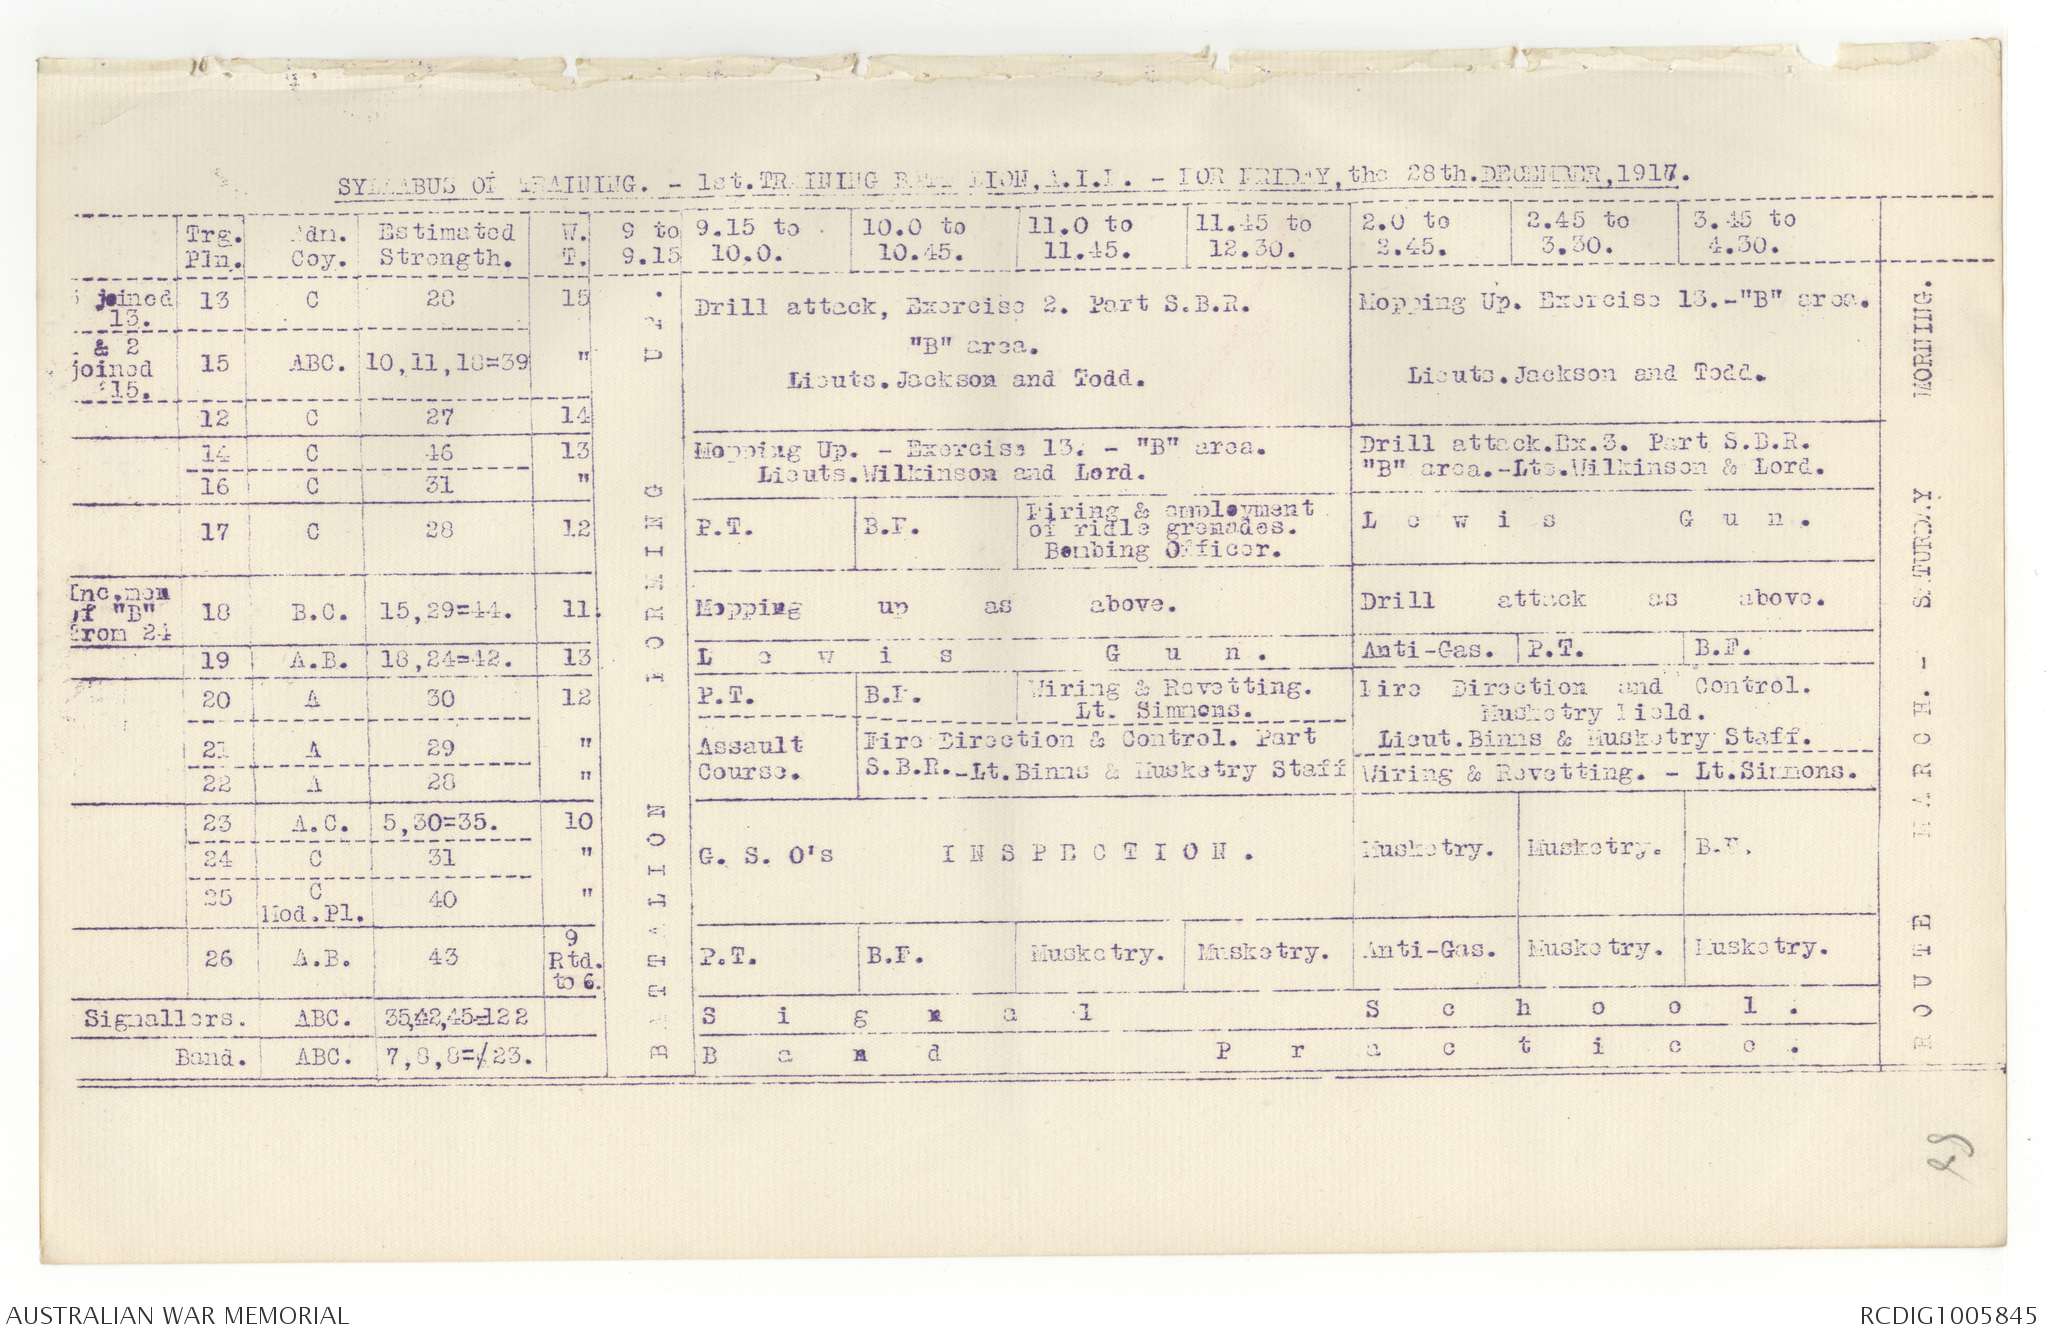 SYLLABUS OF TRAINING. - 1st. TRAINING BATTALION, A.I.F. - FOR FRIDAY, the 28th. DECEMBER, 1917.
Trg. Pln. Adn. Coy. Estimated Strength. W. T. 9 to 9.15 9.15 to 10.0. 10.0 to 10.45. 11.0 to 11.45. 11.45 to 12.30. 2.0 to 2.45. 2.45 to 3.30. 3.45 to 4.30.
joined 13. 13 C 28 15
Drill attack, Exercise 2. Part S.B.R.
"B" area.
Lieuts. Jackson and Todd.
Mopping Up. Exercise 13.-"B" area.
Lieuts. Jackson and Todd.
& 2
joined
15. 15 ABC. 10,11,18=39 "
12 C 27 14
14 C 46 13
16 C 31 "
Mopping Up. - Exercise 13. - "B" area.
Lieuts. Wilkinson and Lord.
Drill attack. Ex.3. Part S.B.R.
"B" area.-Lts. Wilkinson & Lord.
17 C 28 12 P.T. B.F.
Firing & employment
of ridle grenades.
Bombing Officer.
Lewis Gun.
Inc. men
of "B"
from 24 18 B.C. 15,29=44. 11. Mopping up as above. Drill attack as above.
19 A.B. 18,24=42. 13 Lewis Gun. Anti-Gas. P.T. B.F.
20 A 30 12 P.T. B.F. Wiring & Revetting.
Lt. Simmons.
Fire Direction and Control.
Musketry Field.
Lieut. Binns & Musketry Staff.
21 A 29 "
22 A 28 "
Assault
Course.
Fire Direction & Control. Part
S.B.R.-Lt. Binns & Musketry Staff
Wiring & Revetting. - Lt. Simmons.
23 A.C. 5,30=35. 10
24 C 31 "
25 C
Mod.Pl. 40 "
G. S. O's INSPECTION. Musketry. Musketry. B.F.
26 A.B. 43 9
Rtd.
to 6. P.T. B.F. Musketry. Musketry. Anti-Gas. Musketry. Musketry.
Signallers. ABC. 35,42,45=122 Signal School.
Band. ABC. 7,8,8=/23. Band Practice.
BATTALION FORMING UP.
ROUTE MARCH. - SATURDAY MORNING.
AUSTRALIAN WAR MEMORIAL
RCDIG1005845